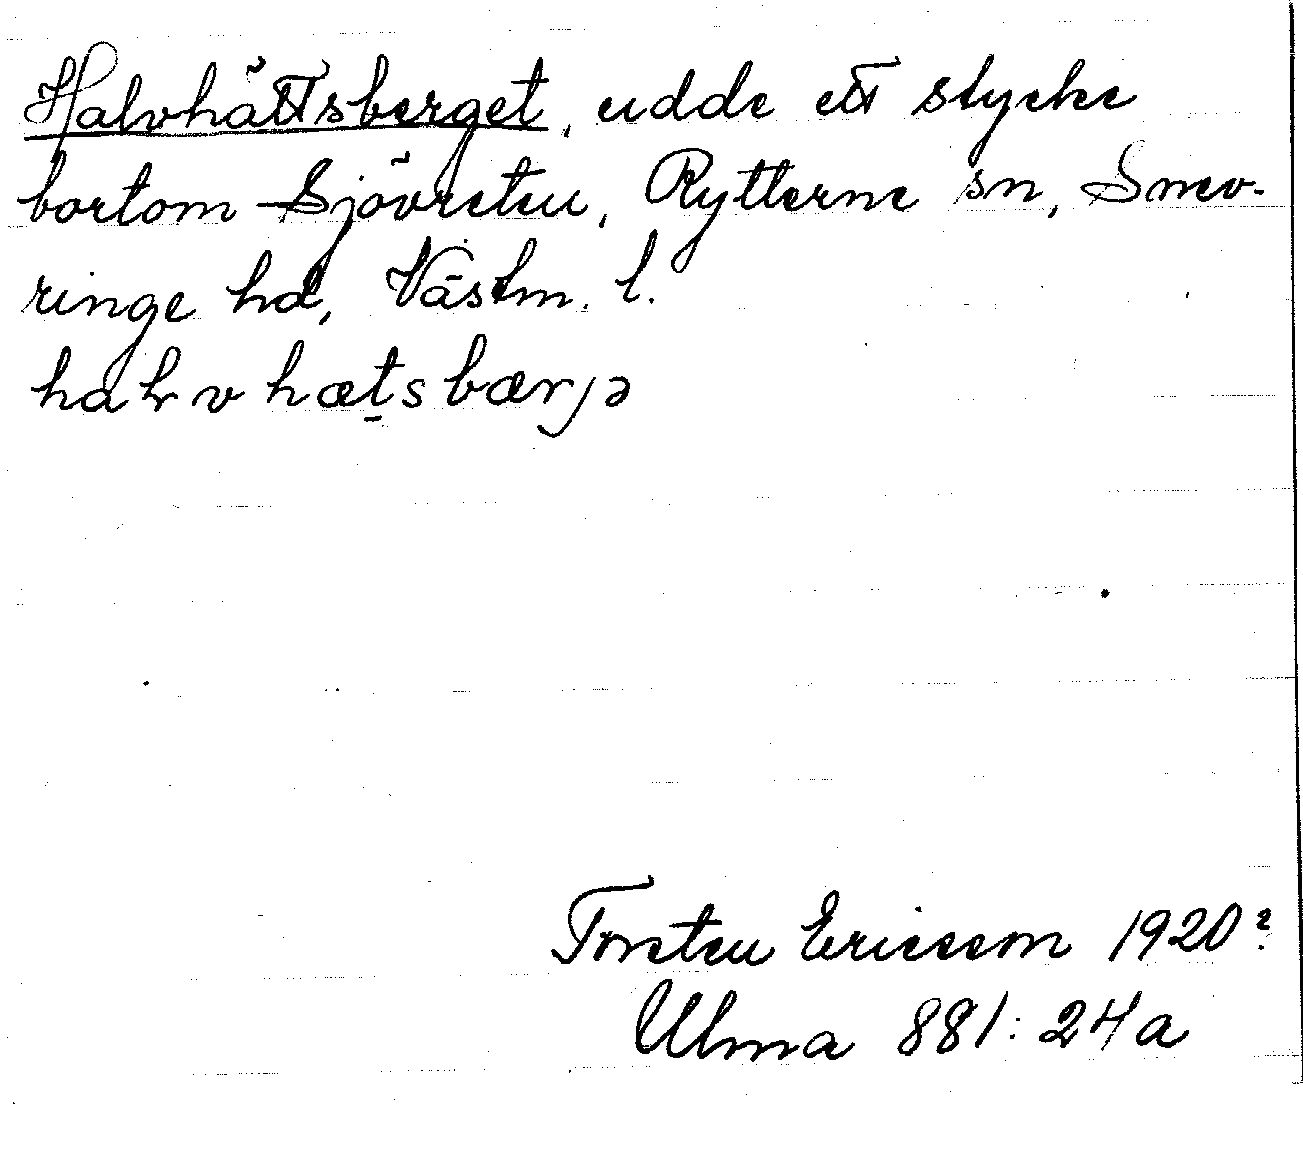 Halvhättsberget, udde ett stycke
bortom Sjövreten, Rytterne sn, Snev-
ringe hd, Västm. l.
hahvhætsbærjə
Torsten Ericsson 1920?
Ulma 881:24a